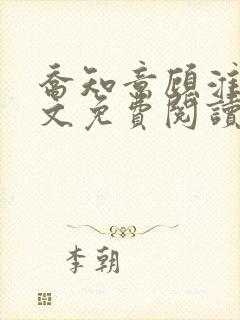 喬知意顧淮
文免費閱讀
李朝